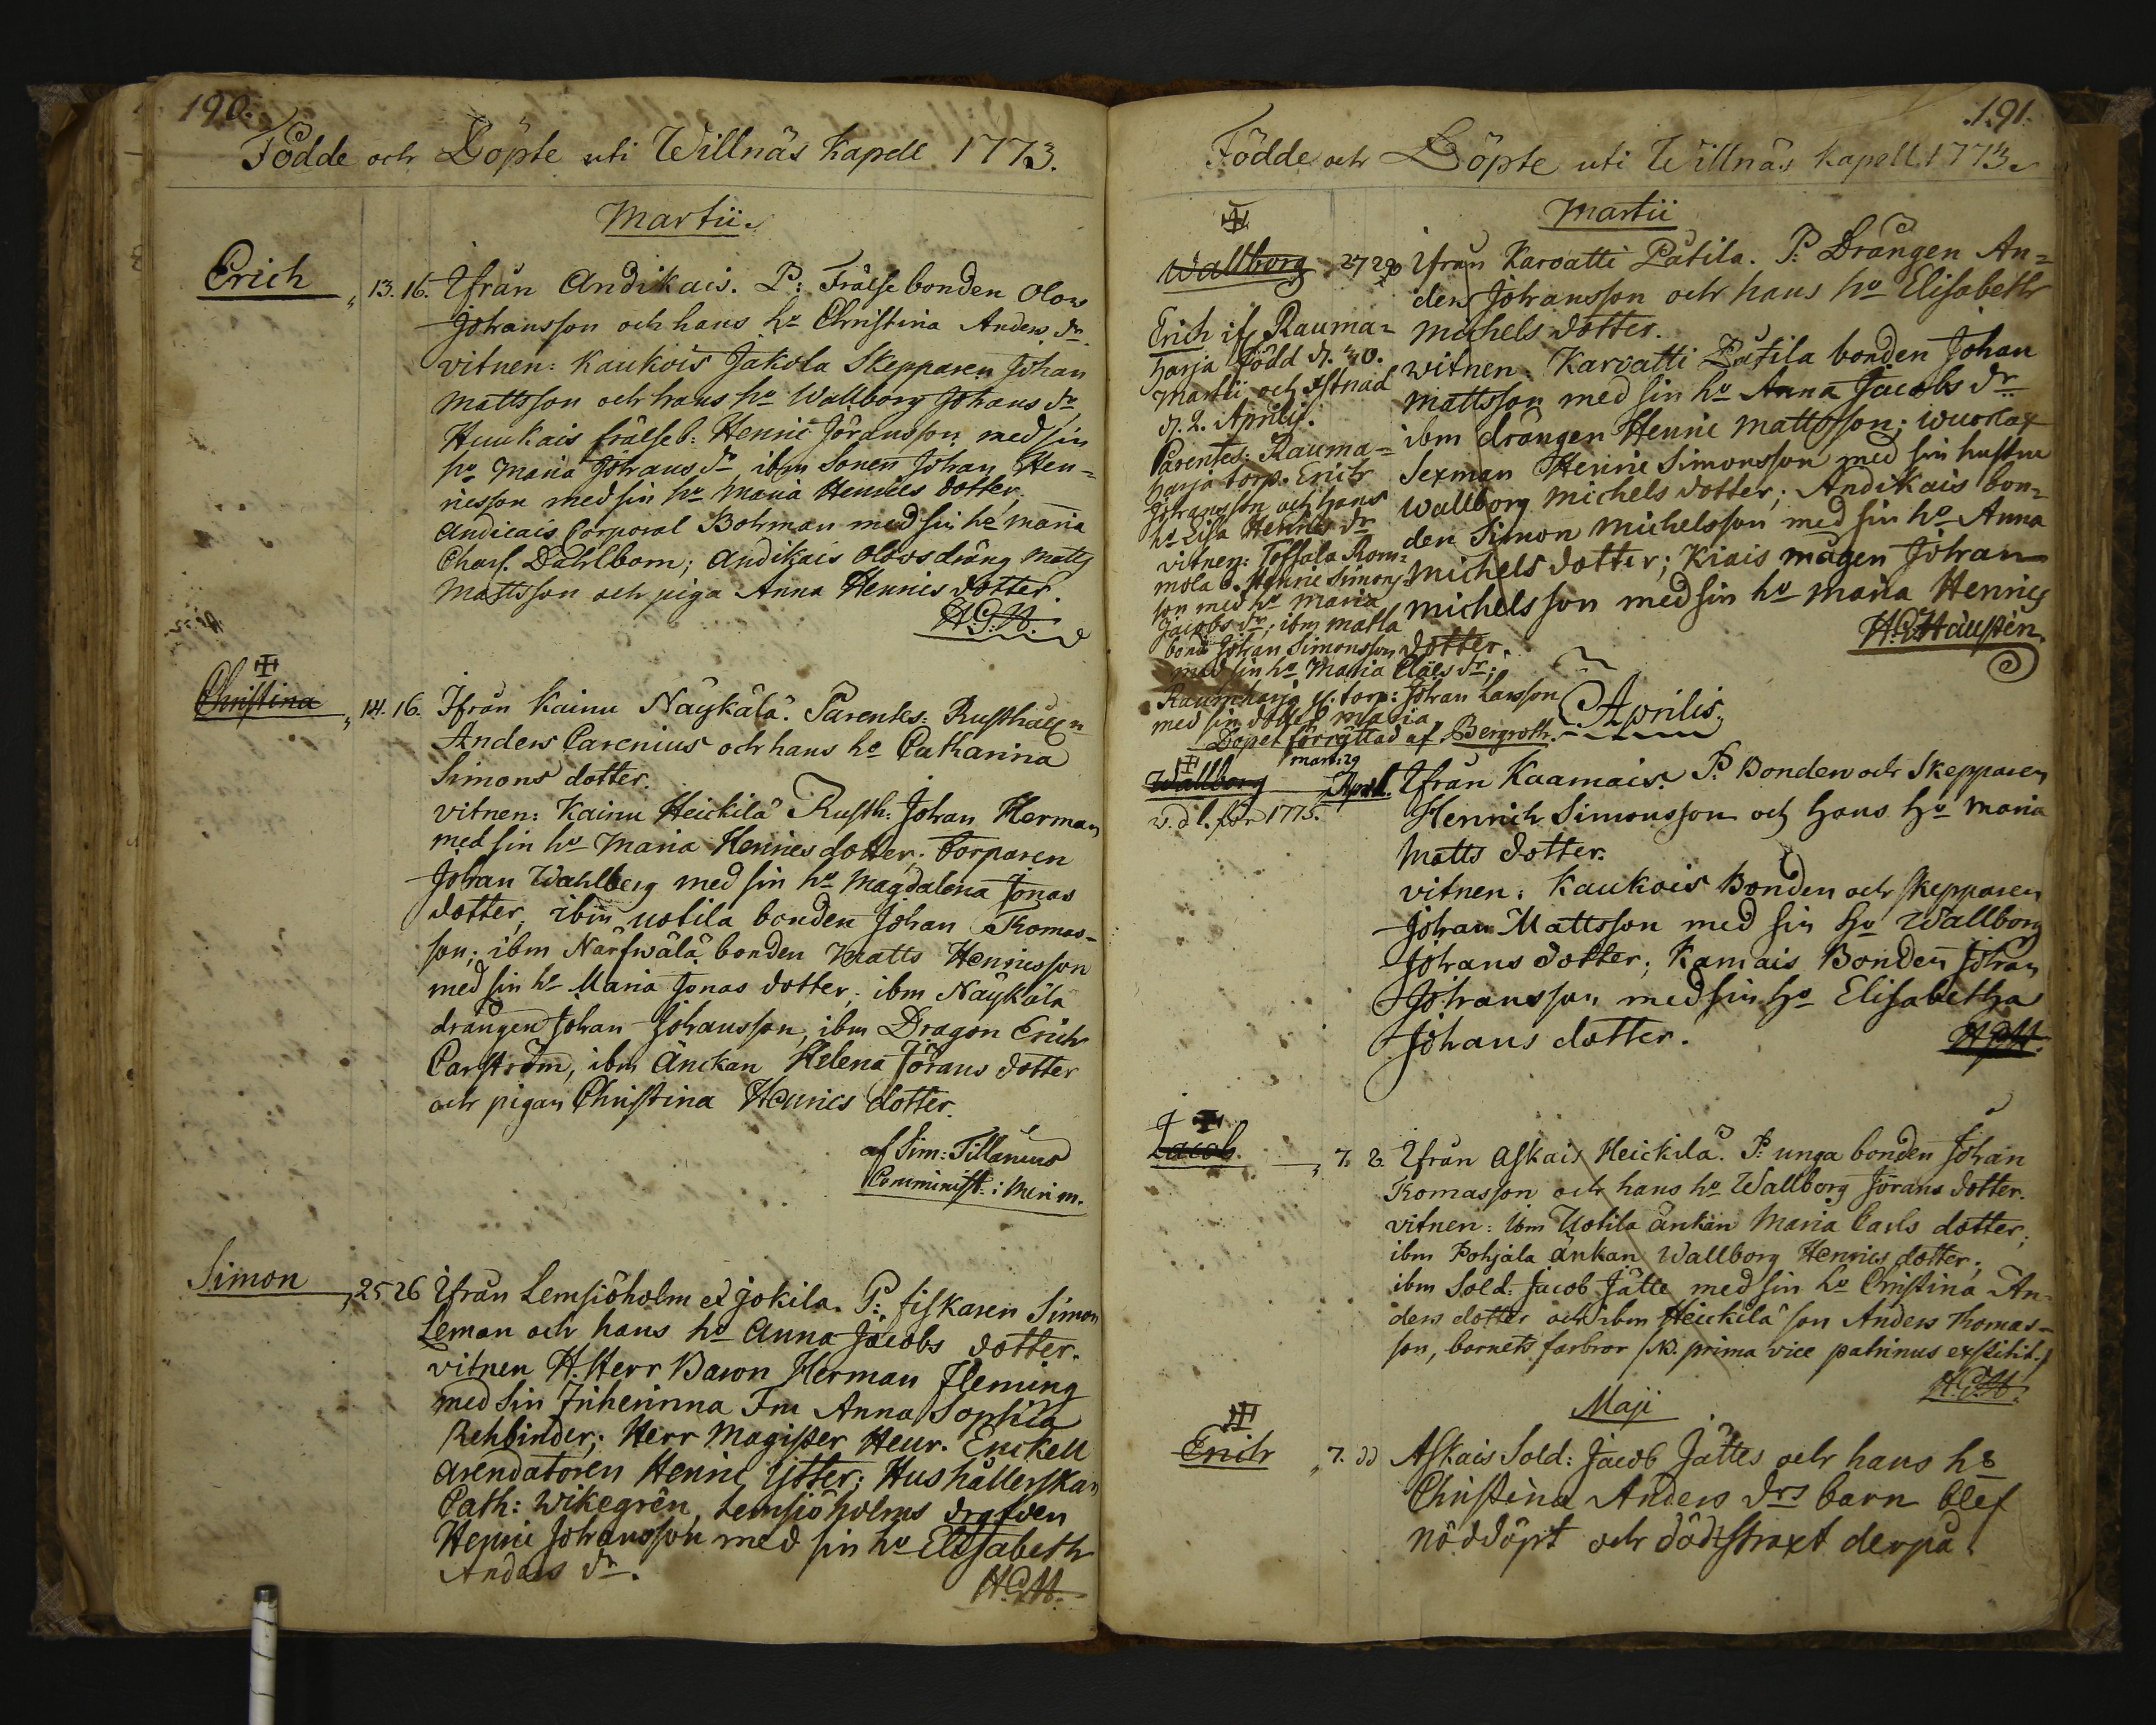 190.
Födde och Döpte uti Willnäs Kapell 1773.
Martii.
Erich
13. 16. Ifrån Andikais. P: Frälsebonden Olow
Johansson och hans ho Christina Anders dr.
vitnen: Kaukois Jakola Skepparen Johan
Mattsson och hans ho Wallborg Johans dr,
Huukais frälseb: Henric Jöransson med sin
ho Maria Johans dr ibm Sonen Johan Hen=
ricsson med sin ho Maria Henrics dotter;
Andicais Corporal Bohrman med sin ho Maria
Charl. Dahlbom; Andikais Olovs dräng Matts
Mattsson och piga Anna Henrics dotter.
H.G.H.
Christina
14. 16. Ifrån Kainu Näykälä. Parentes: Rusthållen
Anders Carenius och hans ho Catharina
Simons dotter.
vitnen: Kainu Heickilä Rusth: Johan Herman
med sin ho Maria Henrics dotter; torparen
Johan Wahlberg med sin ho Magdalena Jonas
dotter, ibm Uotila bonden Johan Thomas-
son; ibm Närfwälä bonden Matts Henricsson
med sin ho Maria Jonas dotter; ibm Näykälä
drängen Johan Johansson, ibm Dragon Erich
Carlström, ibm Änckan Helena Jörans dotter
och pigan Christina Henrics dotter.
af Sim: Tillænius
Comminist: i Merim.
Simon
25 26 Ifrån Lemsiöholm et Jokila. P: fiskaren Simon
Leman och hans ho Anna Jacobs dotter.
vitnen H. Herr Baron Herman Fleming
med sin Friherinna Fru Anna Sophia
Rehbinder; Herr Magister Henr. Enckell
Arendatoren Henric Ytter; Hushållerskan
Cath: Wikegrén, Lemsiöholms
Henric Johansson med sin ho Elisabeth
Anders dr.
H.G.H.
191.
Födde och Döpte uti Willnäs Kapell 1773.
Martii
Wallborg 27 28 Ifrån Karvatti Pätila. P: Drängen An=
ders Johansson och hans ho Elisabeth
Michels dotter.
vitnen. Karvatti Pätila bonden Johan
Mattsson med sin ho Anna Jacobs dr
ibm drängen Henric Mattsson;
Sexman Henric Simonsson med sin hustru
Wallborg Michels dotter; Andikais bon=
den Simon Michelsson med sin ho Anna
Michels dotter; Kiais mågen Johan
Michelsson med sin ho Maria Henrics
dotter.
H.G. Haustén
Erich if. Rauma=
harja född d. 30.
Martii och
d. 2. Aprilis.
Parentes: Rauma=
harja torp. Erich
Johansson och hans
ho Lisa Henrics dr
vitnen: Tossala Rom=
mola b. Henric Simons
son med ho Maria
Jacobs dr; ibm Matla
bond Johan Simonsson
med sin ho Maria Claës dr;
Raumharja torp: Johan Larsson
med sin dotter Maria
Döpet förrättad af Bergroth.
Aprilis.
Wallborg Mart. 29 April. Ifrån Kaamais. P. Bonden och Skepparen
v. d l. för 1775.
Henrich Simonsson och hans ho Maria
Matts dotter.
vitnen: Kaukois Bonden och Skepparen
Johan Mattsson med sin ho Wallborg
Johans dotter; Kamais Bonden Johan
Johansson med sin ho Elisabetha
Johans dotter.
H.G.H.
Jacob.
7. 8. Ifrån Askais Heickilä. P: unga bonden Johan
Thomasson och hans ho Wallborg Jörans dotter.
vitnen: ibm Uotila änkan Maria Carls dotter;
ibm Pohjala änkan Wallborg Henrics dotter;
ibm Sold: Jacob Jätte med sin ho Christina An-
ders dotter och ibm Heickilä son Anders Thomas-
son, barnets farbror /NB. prima vice patrinus exstitit./
H.G.H.
Maji
Erich 7. dd Askais Sold: Jacob Jättes och hans ho
Christina Anders drs barn blef
nöddöpt och död straxt derpå.